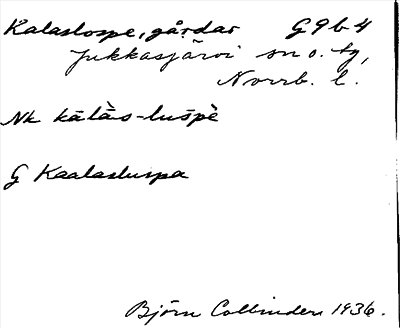 Kalasluspe, gårdar G9b4
Jukkasjärvi sn o. tg,
Norrb. l.
Nk kālàs-luspè
G Kaalasluspa
Björn Collinder 1936.